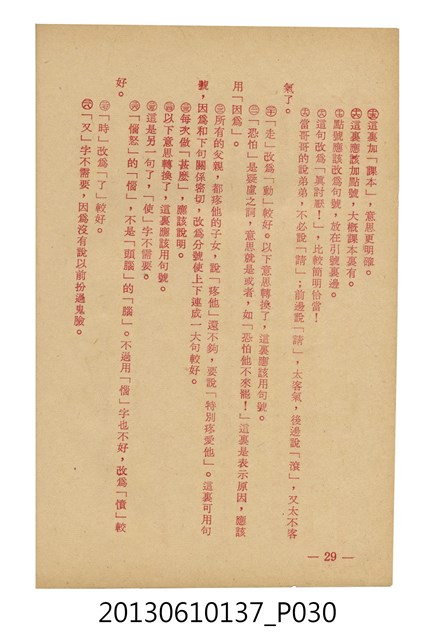 這裏加「課本」，意思更明確。
這裏應該加點號，大概課本裏有。
點號應該改爲句號，放在引號裏邊。
這句改爲「眞討厭！」，比較簡明恰當！
當哥哥的說弟弟，不必說「請」；前邊說「請」，太客氣，後邊說「滾」，又太不客
氣了。
「走」改爲「動」較好。以下意思轉換了，這裏應該用句號。
「恐怕」是疑慮之詞，意思就是或者，如「恐怕他不來罷！」這裏是表示原因，應該
用「因爲」。
所有的父親，都疼他的子女，說「疼他」還不夠，要說「特別疼愛他」。這裏可用句
號，因爲和下句關係密切，改爲分號使上下連成一大句較好。
每次做「甚麽」，應該說明。
以下意思轉換了，這裏應該用句號。
這是另一句了，「使」字不需要。
「惱怒」的「惱」，不是「頭腦」的「腦」。不過用「惱」字也不好，改爲「憤」較
好。
「時」改爲「了」較好。
「又」字不需要，因爲沒有說以前扮過鬼臉。
— 29 —
20130610137_P030